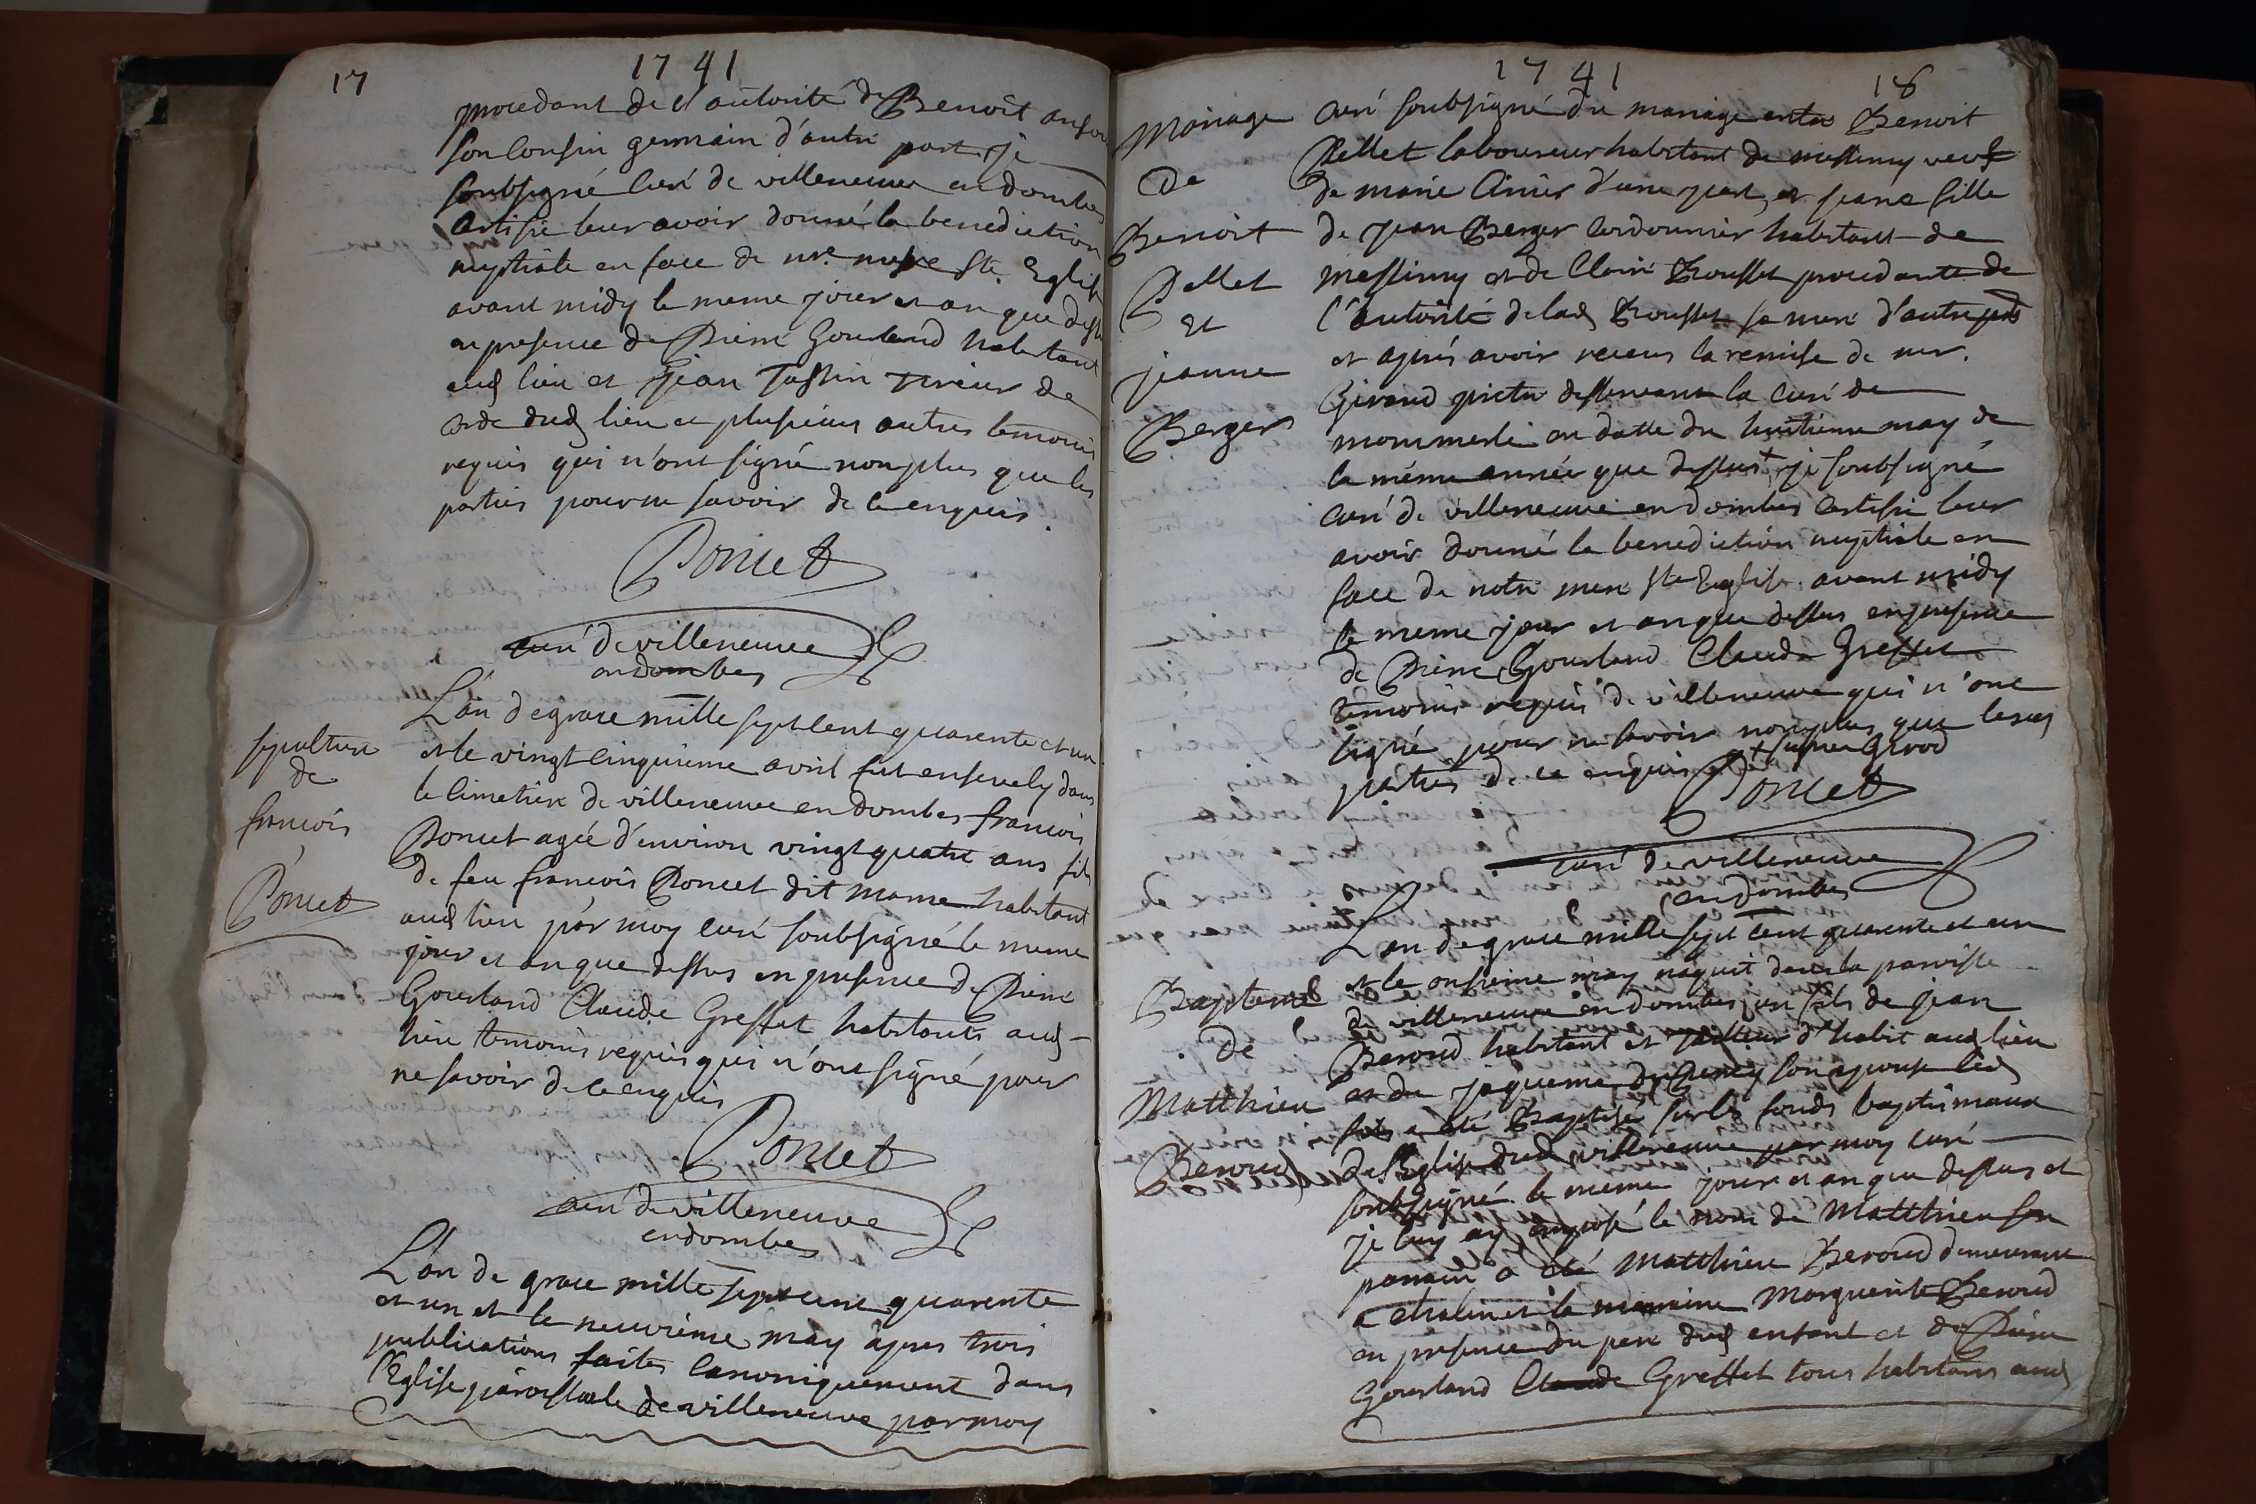 17
1741
procedant de l'autorité de Benoit
son Cousin germain d'autre part je
soubsigné Curé de villeneuve en dombes
certifie leur avoir donné la benediction
nuptiale en face de nre mere Ste Eglise
avant midy le meme jour et an que dessus
en presence de Pierre Gourland habitant
aud lieu et jean Tassin tireur de
corde dud lieu et plusieurs autres temoins
requis qui n'ont signé non plus que les
parties pour ne savoir de ce enquis.
Poncet
curé de villeneuve
en dombes
sepulture
de
francois
Poncet
L'an de grace mille sept cent quarente et un
et le vingt cinquieme avril fut ensevely dans
le Cimetiere de villeneuve en dombes francois
Poncet agée d'environ vingt quatre ans fils
de feu francois Poncet dit mome habitant
aud lieu par moy curé soubsigné le meme
jour et an que dessus en presence de Pierre
Gourland Claude Greffet habitants aud
lieu temoins requis qui n'ont signé pour
ne savoir de ce enquis
Poncet
curé de villeneuve
en dombes
L'an de grace mille sept cent quarente
et un et le neuvieme may apres trois
publications faites Canoniquement dans
l'Eglise paroissiale de villeneuve par moy
1741
18
Mariage
de
Benoit
Pellet
et
jeanne
Berger
curé soubsigné du mariage entre Benoit
Pellet laboureur habitant de messimy veuf
de marie d'une part, et jeane fille
de jean Berger Cordonnier habitant de
messimy et de Claire Rousset procedante de
l'autorité de lad Rousset sa mere d'autre part
et aprés avoir receus la remise de mr.
Giraud pretre desservant la Cure de
mommerle en datte du huitieme may de
la méme année que dessus + je soubsigné
curé de villeneuve en dombes certifie leur
avoir donné la benediction nuptiale en
face de notre mere Ste Eglise avant midy
le meme jour et an que dessus en presence
de Pierre Gourland Claude Greffet
temoins requis de villeneuve qui n'ont
signé pour ne savoir non plus que les
parties de ce enquis
Poncet
curé de villeneuve
en dombes
Bapteme
de
Matthieu
Beroud
L'an de grace mille sept cent quarente et un
et le onsieme may náquit dans la paroisse
de villeneuve en dombes un fils de jean
Beroud habitant et tailleur d'habit aud lieu
et de jaqueme son epouse led
fils a été Baptisé sur les fonds baptismaux
de l'Eglise dud villeneuve par moy curé
soubsigné le meme jour et an que dessus et
je luy ay imposé le nom de Matthieu son
parrain a été Matthieu Beroud demeurant
a et la marraine Marguerite Beroud
en presence du pere dud enfant et de Pierre
Gourland Claude Greffet tous habitans aud